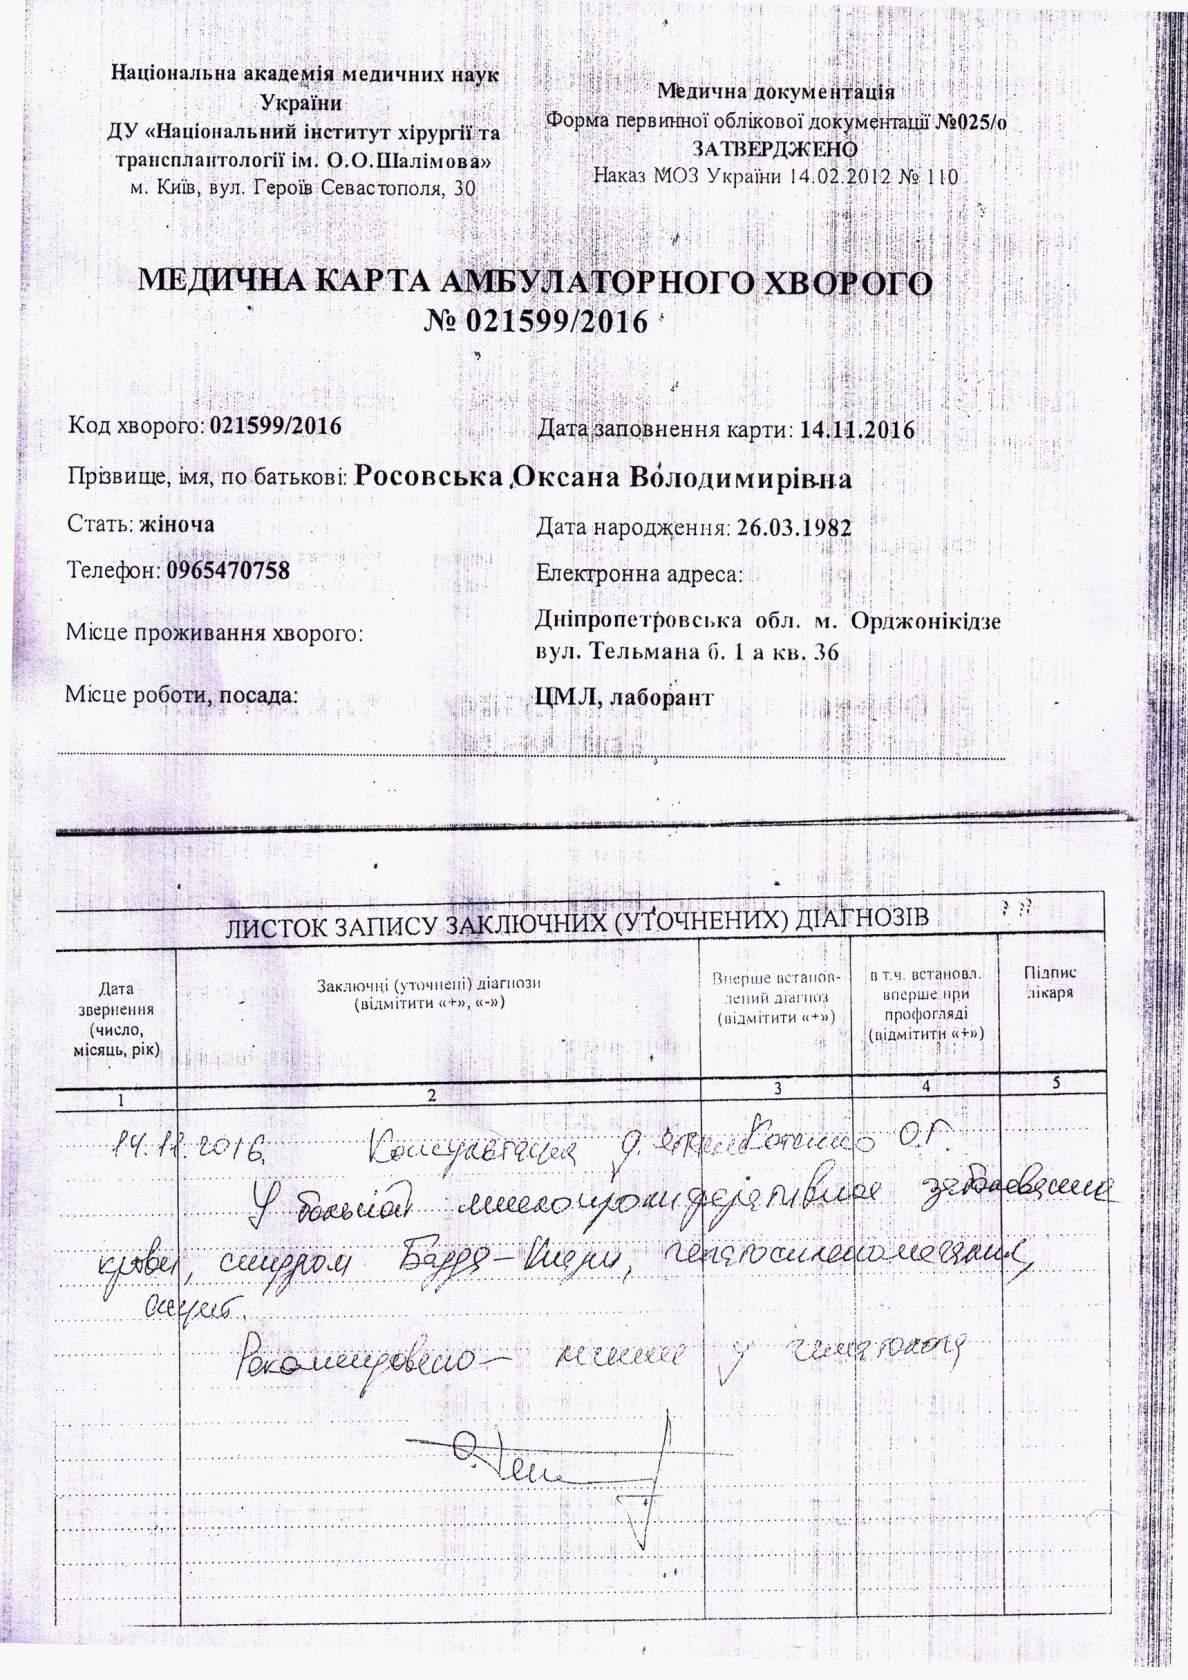 Національна академія медичних наук
України
ДУ «Національний інститут хірургії та
трансплантології ім. О.О.Шалімова»
м. Київ, вул. Героїв Севастополя, 30
Медична документація
Форма первинної облікової документації №025/о
ЗАТВЕРДЖЕНО
Наказ МОЗ України 14.02.2012 № 110
МЕДИЧНА КАРТА АМБУЛАТОРНОГО ХВОРОГО
№ 021599/2016
Код хворого: 021599/2016
Дата заповнення карти: 14.11.2016
Прізвище, імя, по батькові: Росовська Оксана Володимирівна
Стать: жіноча
Дата народження: 26.03.1982
Телефон: 0965470758
Електронна адреса:
Місце проживання хворого:
Дніпропетровська обл. м. Орджонікідзе
вул. Тельмана б. 1 а кв. 36
Місце роботи, посада:
ЦМЛ, лаборант
ЛИСТОК ЗАПИСУ ЗАКЛЮЧНИХ (УТОЧНЕНИХ) ДІАГНОЗІВ
Дата
звернення
(число,
місяць, рік)
Заключні (уточнені) діагнози
(відмітити «+», «-»)
Вперше встанов-
лений діагноз
(відмітити «+»)
в т.ч. встановл.
вперше при
профогляді
(відмітити «+»)
Підпис
лікаря
1 2 3 4 5
14.11.2016. Консультация Котенко О.Г.
У больной миелопролиферативное заболевание
крови, синдром Бадда-Киари, гепатоспленомегалия,
асцит.
Рекомендовано - лечение у гематолога